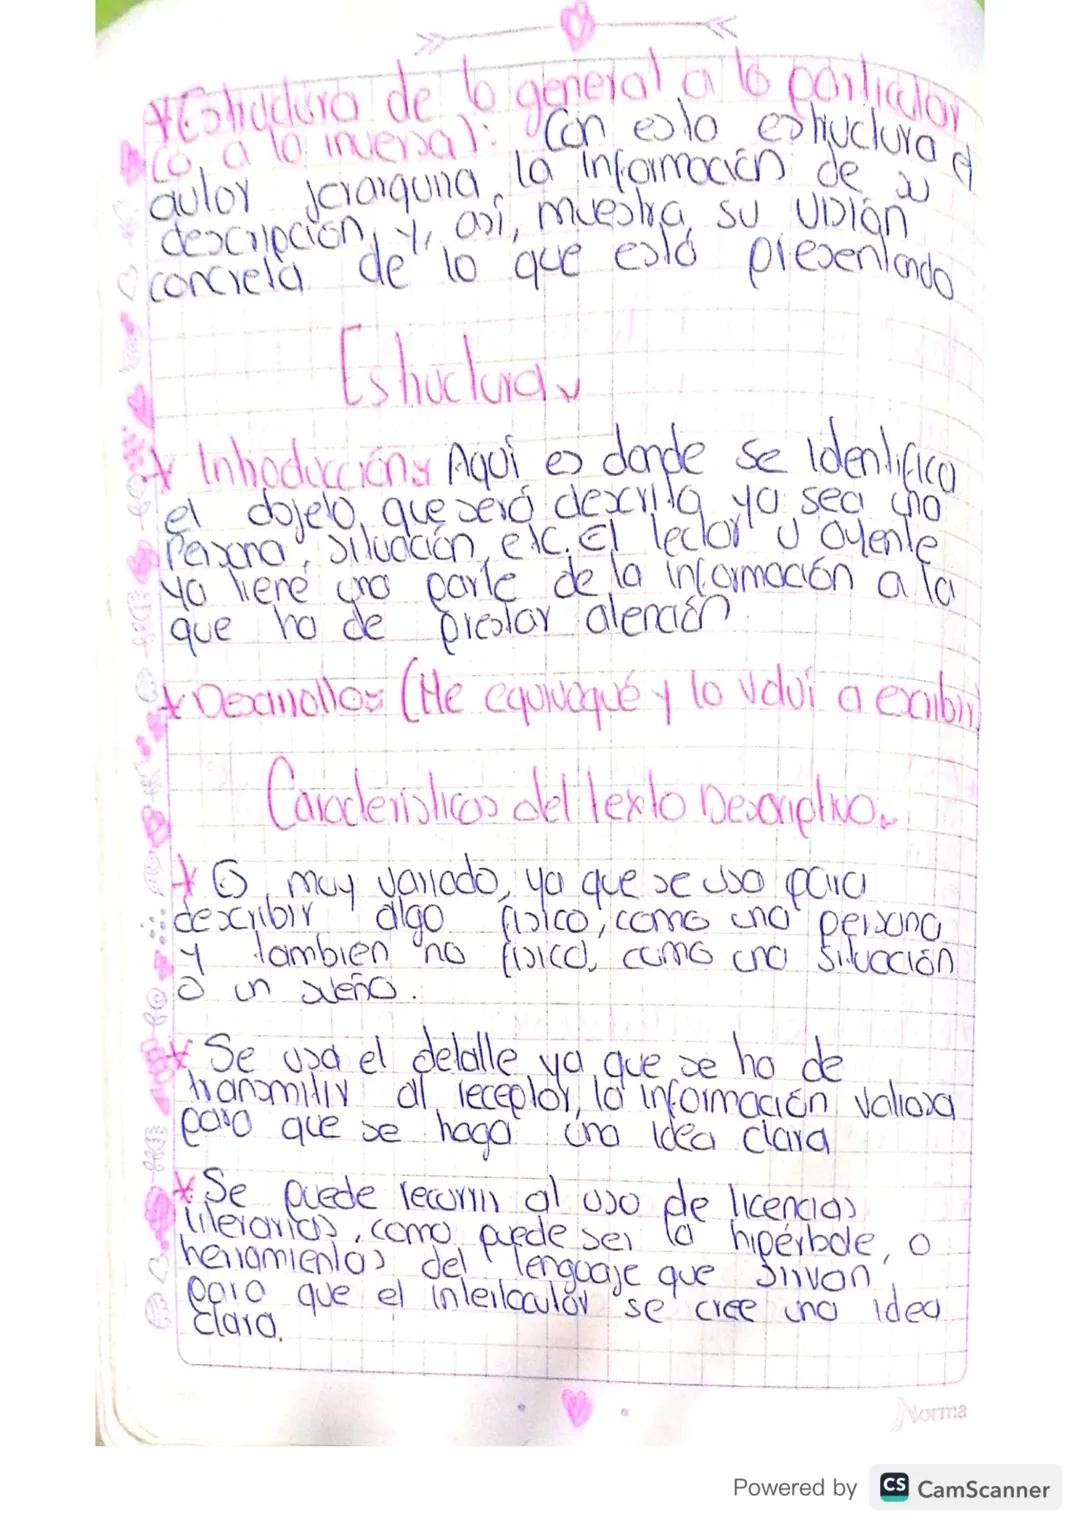 *Estructura de lo general a lo particular
(o, a lo inversa): Con esta estructura el
autor jerarquiza la información de su
descripción, y, así, muestra su visión
concreta de lo que está presentando
Estructura
* Introducción: Aquí es donde se identifica
el objeto que será descrito ya sea una
Persona, situación, etc. El lector u oyente
ya tiene una parte de la información a la
que ha de prestar atención.
* Desarrollo: (Me equivoqué y lo volví a escribir)
Características del texto Descriptivo.
* Es muy variado, ya que se usa para
describir algo físico, como una persona
y tambien no físico, como una situación
o un sueño.
* Se usa el detalle ya que se ha de
transmitir al receptor, la información valiosa
para que se haga una idea clara
* Se puede recurrir al uso de licencias
literarias, como puede ser la hipérbole, o
herramientas del lenguaje que sirvan,
para que el interlocutor se cree una idea
clara.
Norma
Powered by CS CamScanner